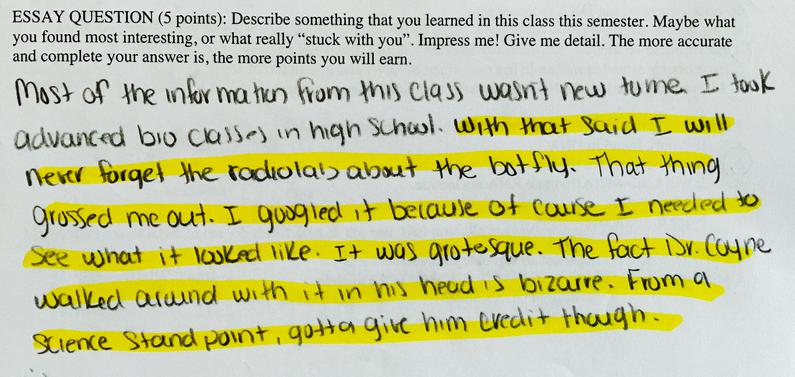 ESSAY QUESTION (5 points): Describe something that you learned in this class this semester. Maybe what
you found most interesting, or what really “stuck with you”. Impress me! Give me detail. The more accurate
and complete your answer is, the more points you will earn.
Most of the information from this class wasn't new to me. I took
advanced bio classes in high school. With that said I will
never forget the radiolab about the botfly. That thing
grossed me out. I googled it because of cause I needed to
see what it looked like. It was grotesque. The fact Dr. Coyne
walked around with it in his head is bizarre. From a
science stand point, gotta give him credit though.